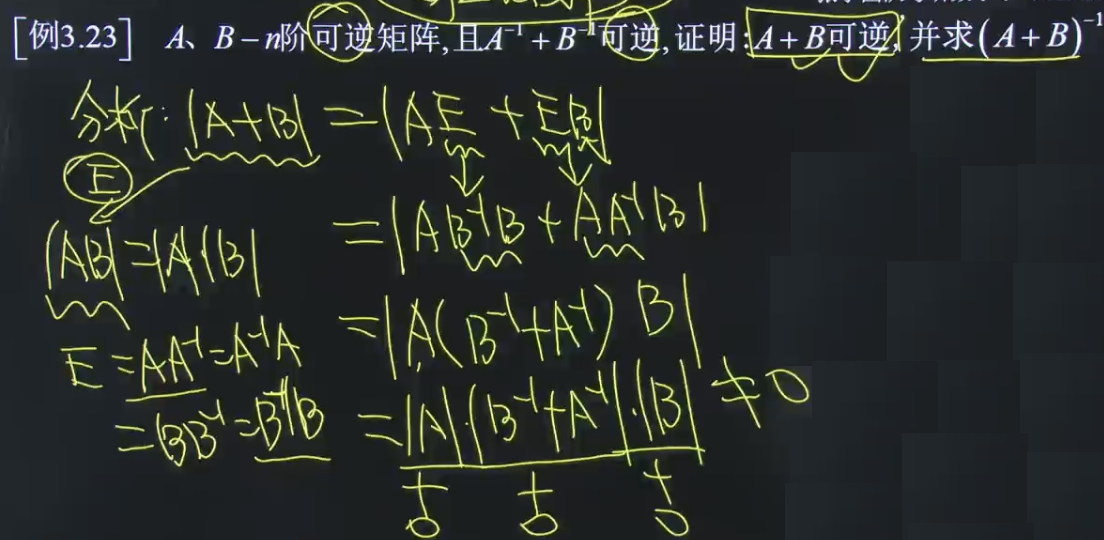 [例3.23] A、B-n阶可逆矩阵,且A⁻¹+B⁻¹可逆,证明:A+B可逆,并求(A+B)⁻¹
分析: |A+B| = |AE + EB|
E
= |AB⁻¹B + AA⁻¹B|
|AB| = |A|·|B|
= |A(B⁻¹+A⁻¹)B|
E = AA⁻¹ = A⁻¹A
= BB⁻¹ = B⁻¹B
= |A|·|B⁻¹+A⁻¹|·|B| ≠ 0
≠0 ≠0 ≠0